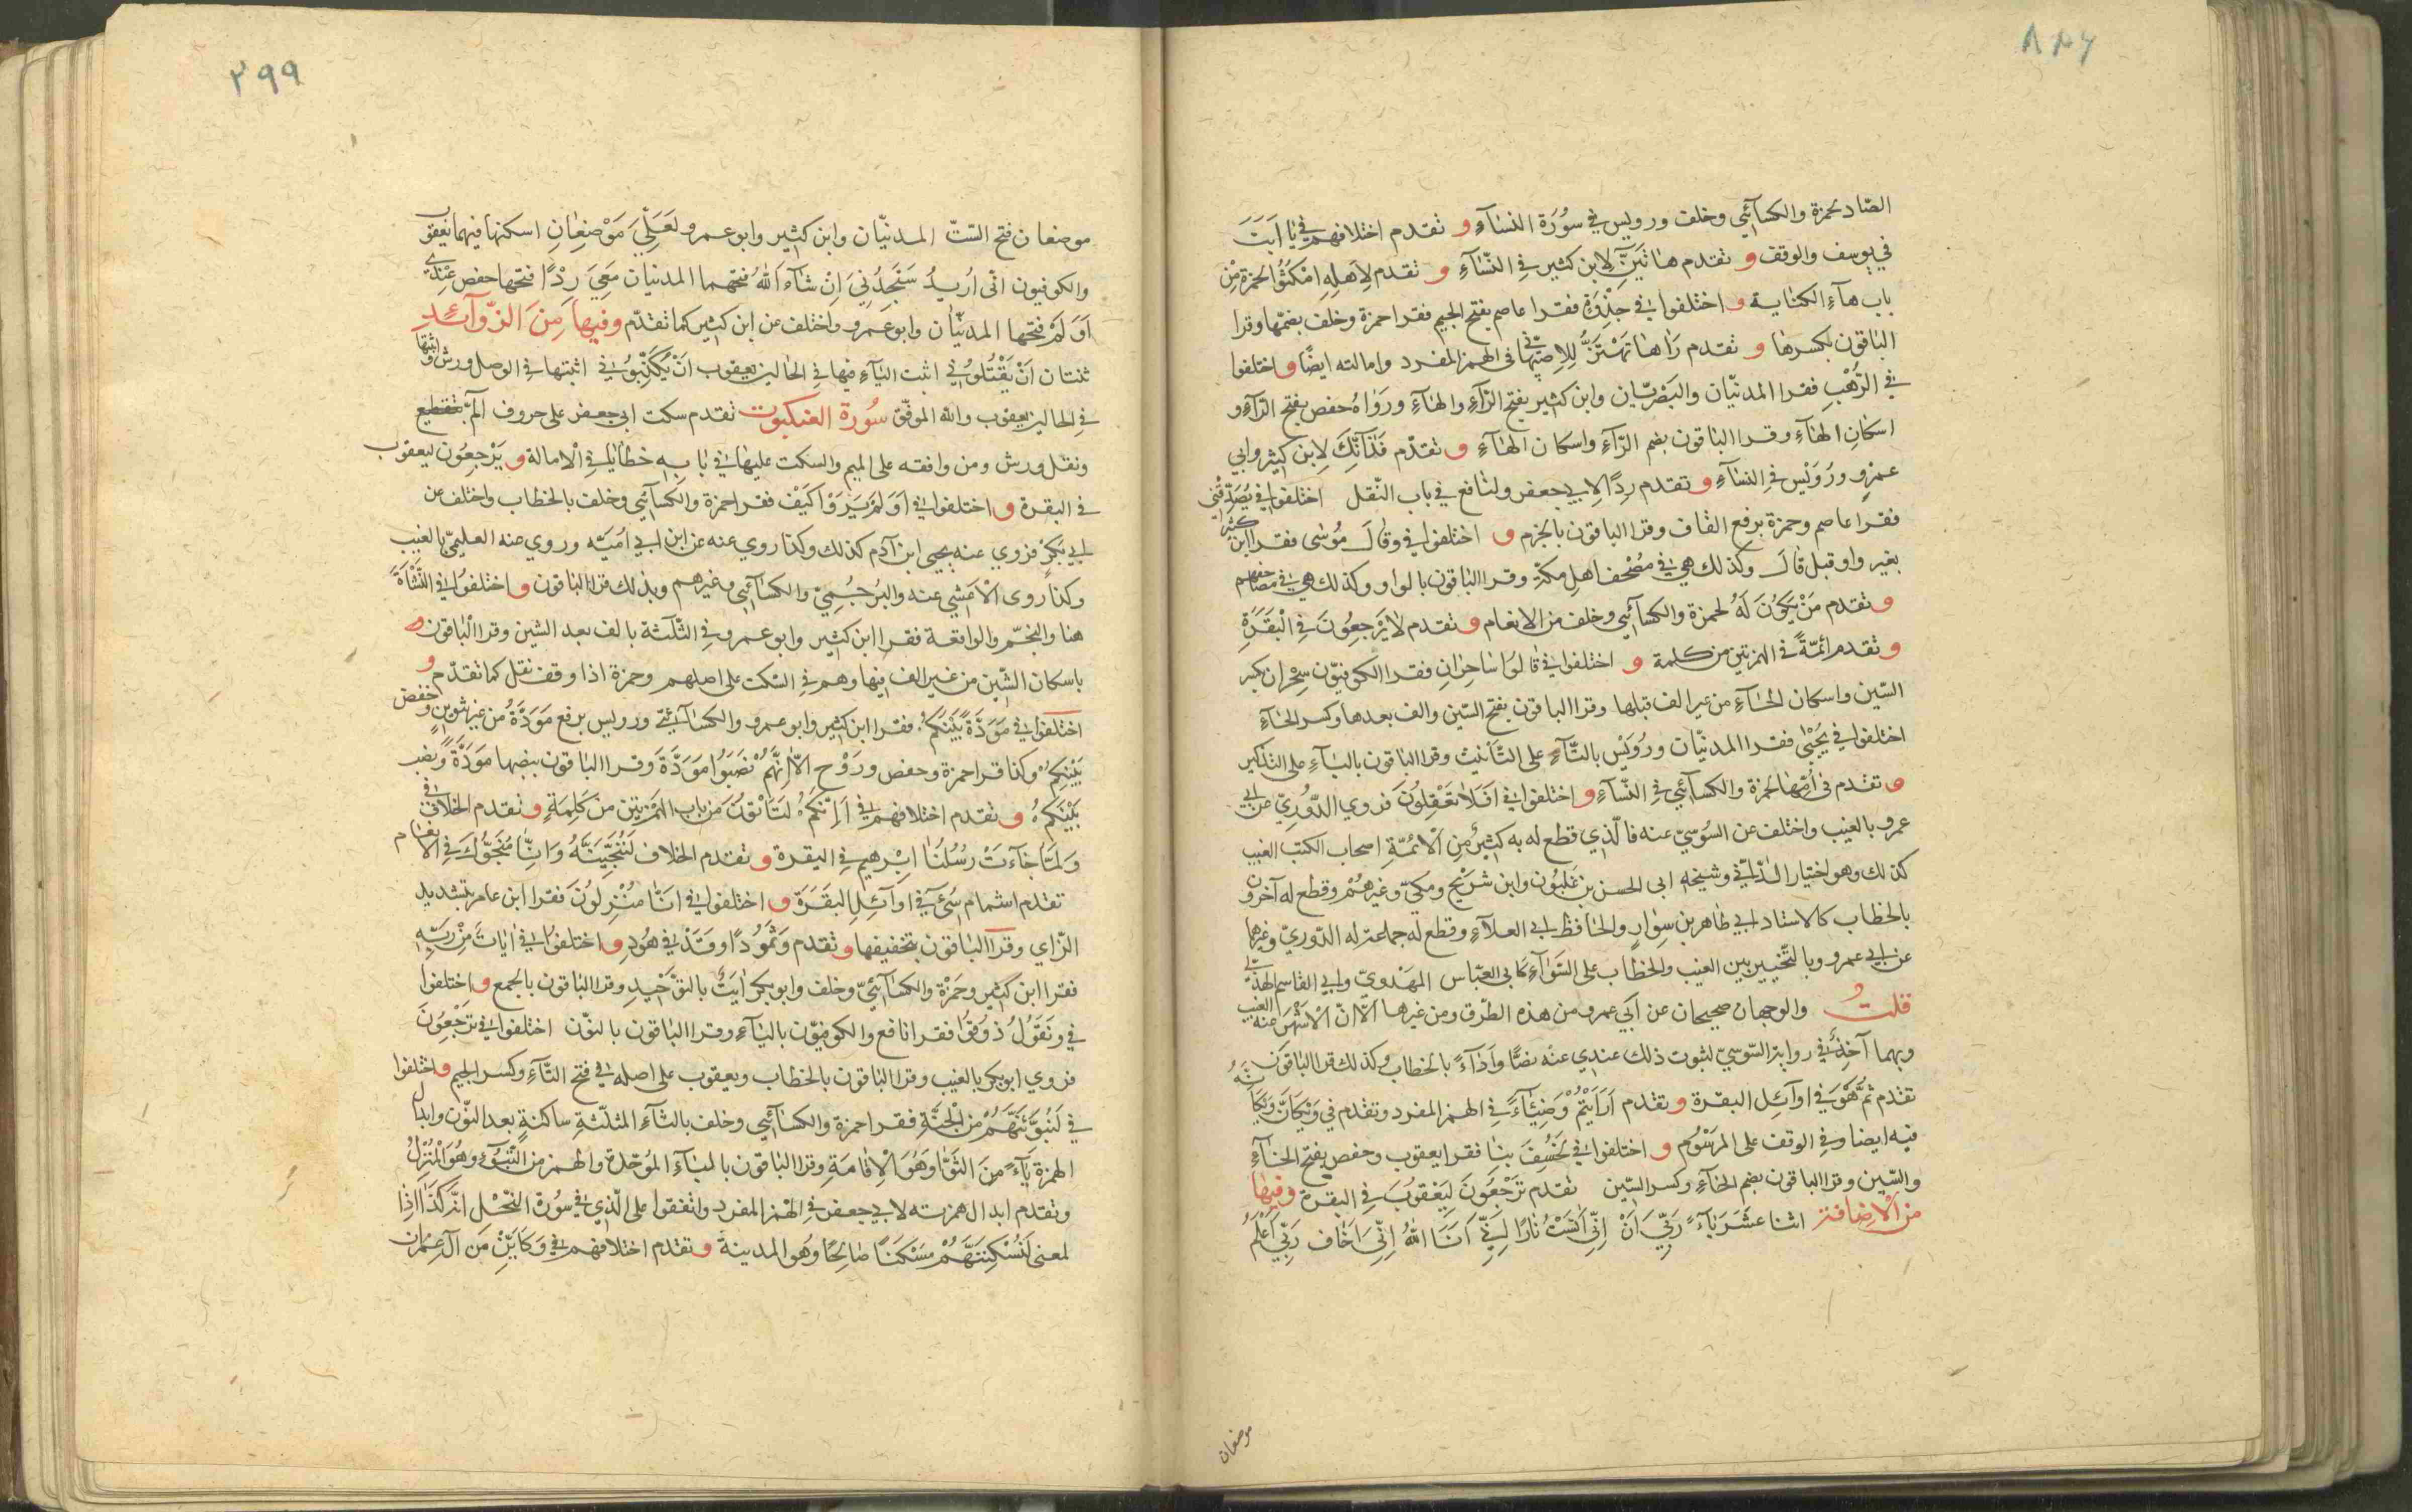 ٨٨٦
الصّاد لحمزة والكسآئيّ وخلف ورويس في سُورَة النسَآءِ و تقدم اختلافهم في يٰا اَبَتَ
في يوسف والوقف و تقدم هاتَيَنِّ لِابن كثير في النّسآءِ و تقدم لِاَهلِهِ امْكُثُوا لحمزة مِنْ
باب هآءِ الكناية و اختلفوا في جَذْوَةٍ فقرا عاصم بفتح الجيم فقرا حمزة وخلف بضمّها وقرا
الباقون بكسرها و تقدم رَاٰهَا تَهْتَزُّ لِلاصبهاني في الهمز المفرد وامالته ايضًا و اختلفوا
في الرَّهْبِ فقرا المدنيّان والبَصْريّان وابن كثير بفتح الرّآءِ والهآءِ ورَوٰاهُ حفص بفتح الرّآءِ و
اسكانِ الهٰآءِ وقرا الباقون بضم الرّآءِ واسكان الهٰآءِ و تقدّم فَذٰانِّكَ لِابن كثير وابي
عمرٍو ورُوَيْس في النسَآءِ و تقدم رِدًا لِابي جعفر ولنافع في باب النّقل اختلفوا في يُصَدِّقُني
فقرا عاصم وحمزة برفع القاف وقرا الباقون بالجزم و اختلفوا في وقٰالَ مُوسٰى فقرا ابن كثير
بغير واو قبل قٰالَ وكذلك هي في مصْحف اهلِ مكّة وقرا الباقون بالواو وكذلك هي في مصاحفهم
و تقدم مَنْ يَكُونَ لَهُ لحمزة والكسآئيّ وخلف من الانعام و تقدم لا يَرْجِعُونَ في الْبَقَرَةِ
و تقدم ائمّةً في الهمزتين من كلمة و اختلفوا في قٰالُوا سٰاحِرٰانِ فقرا الكوفيّون سِحْرٰان بكسر
السّين واسكان الحٰآءِ من غير الف قبلها وقرا الباقون بفتح السّين والف بعدها وكسر الحٰآءِ
اختلفوا في يُجْبٰى فقرا المدنيّان ورُوَيْس بالتّآءِ على التّأنيث وقرا الباقون باليٰآءِ على التذكير
و تقدم في اُمِّهٰا لحمزة والكسآئيّ في النّسآءِ و اختلفوا في اَفَلاٰ تَعْقِلُونَ فروي الدّوُريّ عن ابي
عمرو بالغيب واختلف عن السّوُسيّ عنه فالّذي قطع له به كثيرٌ مِن الْائمّةِ اصحاب الكتب الغيب
كذلك وهو اختيار الدّانيّ وشيخه ابي الحسن بن غلبُون وابن شُرَيْح ومكيّ وغيرهُمْ وقطع له آخرون
بالخطاب كالاستاد ابي طاهر بن سِوٰارٍ والحٰافظ ابي العلآءِ وقطع له جماعة له الدّوريّ وغيرها
عن ابي عمرو وبالتّخيير بين الغيب والخطاب على السّوٰآءِ كابي العبّاس المهْدويّ وابي القاسم الهذليّ
قلتُ والوجهان صحيحان عن اَبي عمرو من هذه الطّرق ومن غيرها اِلّا انّ الْاَشْهَر عنه الغيب
وبهما آخِذٌ في رواية السّوسيّ لثبوت ذلك عندي عنه نصًّا واَدَآءً بالخطاب وكذلك قرا الباقون
تقدم ثُمَّ هُوَ في اوآئِل البقرة و تقدم اَرَاَيْتُمْ وَضِيٰآءً في الهمز المفرد وتقدم في وَيْكَاَنَّ وَيْكَاَنَّهُ
فيه ايضا وفي الوقف على المرسُوم و اختلفوا في لَخُسِفَ بنٰا فقرا يعقوب وحفص بفتح الخآءِ
والسّين وقرا الباقون بضم الخآءِ وكسر السّين تقدم تَرْجِعُونَ لِيَعْقوُبَ في البقرة وفيهٰا
مِن الْاِضافة اثنا عشَرَ يٰآءً رَبّي اَنْ اِنّي اٰنَسْتُ نٰارًا اِنّي اَنَا اللّٰهُ اِنّيَ اَخٰاف رَبّي اَعْلَمُ
موضعان
٢٩٩
موضعان فتح السّتّ المدنيّان وابن كثير وابو عمرو لَعَلّيَ مَوْضِعٰانِ اسكنها فيهما يعقوب
والكوفيون انّي اُريدُ سَتَجِدُنيَ اِنْ شآءَ اللّٰهُ فتحهما المدنيان مَعِيَ رِدْءًا فتحها حفص عِنْدي
اَوَلَمْ فتحها المدنيّان وابو عمرو واختلف عن ابن كثير كما تقدّم وفيها مِنَ الزّوآئدِ
ثنتان اَنْ يَقْتُلوُني اثبت اليٰآءِ فيها في الحٰالين يعقوب اَنْ يُكَذِّبُوني اثبتها في الوصل ورش واثبتها
في الحالين يعقوب واللّٰه الموفّق سُورَة العنكبوت تقدم سكت ابي جعفر على حروف آلم بتقطيع
ونقل ورش ومن وافقه على الميم والسكت عليها في بٰابِه خطٰايٰا في الْامالة و يَرْجِعُون ليعقوب
في البقرة و اختلفوا في اَوَلَمْ يَرَوْا كَيْف فقرا حمزة والكسآئيّ وخلف بالخطاب واختلف عن
ابي بكرٍ فروي عنه يحيى ابن آدم كذلك وكذا روي عنه عن ابن ابي اُميّة وروي عنه العليميّ بالغيب
وكذا روى الْاعشي عنه والبُرجُمِيّ والكسآئي وغيرهم وبذلك قرا الباقون و اختلفوا في النَّشْاَةَ
هنا والنجم والواقعة فقرا ابن كثير وابو عمرو في الثّلٰثة بالف بعد الشين وقرا الباقون
باسكان الشّين من غير الف فيها وهم في السّكت على اصلهم وحمزة اذا وقف نقل كما تقدّم و
اختلفوا في مَوَدَّةَ بَيْنِكُمْ فقرا ابن كثير وابو عمرو والكسآئيّ ورويس برفع مَوَدَّةُ من غير تنوينٍ وخفض
بَيْنِكُمْ وكذا قرا حمزة وحفص ورَوْح اِلّا اَنّهُمْ نَصَبُوا مَوَدَّةَ وقرا الباقون بنصبها مَوَدَّةً ونصب
بَيْنَكُمْ و تقدم اختلافهم في اَئِنَّكُمْ لَتَأْتُونَ من باب الهمزتين من كَلِمَةٍ و تقدم الخلاف في
وَلَمّا جٰآءَتْ رُسُلُنٰا اِبْرٰهيم في البقرة و تقدم الخلاف لَنُنَجِّيَنَّهُ وَاِنّٰا مُنَجُّوكَ في الانعام
تقدم اشمام سيئَ في اوآئِلِ البقَرَة و اختلفوا في اِنّٰا مُنْزِلُونَ فقرا ابن عامر بتشديد
الزّاي وقرا الباقون بتخفيفها و تقدم وَثَمُودًا وقَدْ في هُود و اختلفوا في اٰيٰاتٌ مِنْ رَبِّه
فقرا ابن كثير وحَمْزة والكسآئيّ وخلف وابو بكر اٰيَةٌ بالتوْحيدِ وقرا الباقون بالجمع و اختلفوا
في ونَقُولُ ذُوقُوا فقرا نافع والكوفيّون باليٰآءِ وقرا الباقون بالنوّن اختلفوا في تُرْجَعُونَ
فروي ابو بكر بالغيب وقرا الباقون بالخطاب ويعقوب على اصله في فتح التّآءِ وكسر الجيم و اختلفوا
في لَنُبَوِّئَنَّهُمْ مِنَ الْجَنّةِ فقرا حمزة والكسآئيّ وخلف بالثآء المثلّثةِ ساكنةٍ بعد النّون وابدال
الهمزة يآءً مِنَ الثّوٰآءِ وهُوَ الْاِقامَةِ وقرا الباقون بالبٰآءِ الموَحّدة والهمز من التّبَوُّءِ وهُوَ المُنْزِلُ
وتقدم ابدال همزته لابي جعفر في الهْمز المفرد واتفقوا على الّذي في سُورة النّحْل انّه كَذَا اِذا
لمعنى لَنُسْكِنَنّهُمْ مَسْكَنًا صٰالحًا وَهُو المدينة و تقدم اختلافهم في وَكَاَيِّنْ مِن آل عِمْرٰان